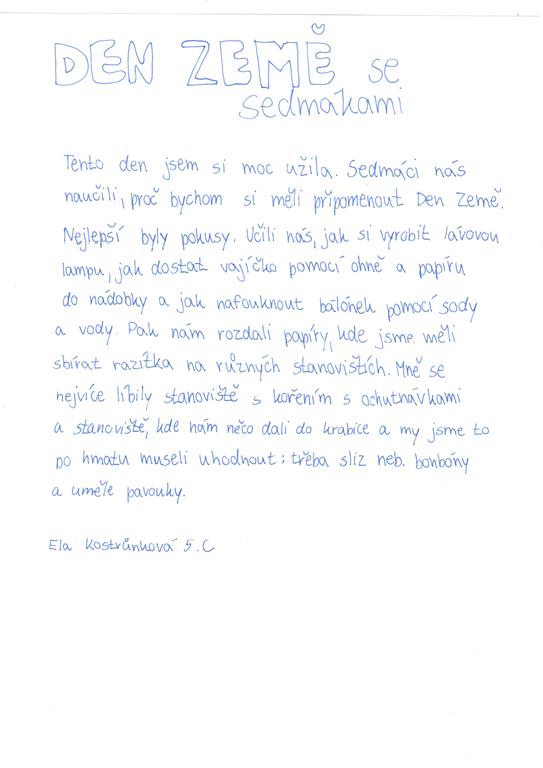 DEN ZEMĚ se
sedmákami
Tento den jsem si moc užila. Sedmáci nás
naučili, proč bychom si měli připomenout Den Země.
Nejlepší byly pokusy. Učili nás, jak si vyrobit lávovou
lampu, jak dostat vajíčko pomocí ohně a papíru
do nádobky a jak nafouknout bálónek pomocí sody
a vody. Pak nám rozdali papíry, kde jsme měli
sbírat razítka na různých stanovištích. Mně se
nejvíce líbily stanoviště s kořením s ochutnávkami
a stanoviště, kde nám něco dali do krabice a my jsme to
po hmatu museli uhodnout: třeba sliz neb. bonbóny
a umělé pavouky.
Ela Kostrůnková 5.C